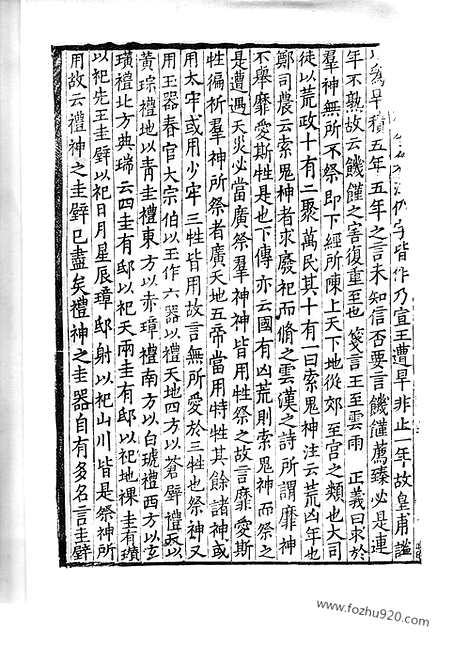 皆作乃宣王遭旱非止一年故皇甫謐
以爲旱積五年五年之言未知信否要言饑饉薦臻必是連
年不熟故云饑饉之害復重至也 箋言王至雲雨 正義曰求於
羣神無所不祭即下經所陳上天下地從郊至宮之類也大司
徒以荒政十有二聚萬民其十有一曰索鬼神注云荒凶年也
鄭司農云索鬼神者求廢祀而脩之雲漢之詩所謂靡神
不舉靡愛斯牲是也下傳亦云國有凶荒則索鬼神而祭之
是遭遇天災必當廣祭羣神神皆用牲祭之故言靡愛斯
牲徧祈羣神所祭者廣天地五帝當用特牲其餘諸神或
用太牢或用少牢三牲皆用故言無所愛於三牲也祭神又
用玉器春官大宗伯以玉作六器以禮天地四方以蒼璧禮天以
黃琮禮地以青圭禮東方以赤璋禮南方以白琥禮西方以玄
璜禮北方典瑞云四圭有邸以祀天兩圭有邸以祀地祼圭有瓚
以祀先王圭璧以祀日月星辰璋邸射以祀山川皆是祭神所
用故云禮神之圭璧已盡矣禮神之圭器自有多名言圭璧
www.fozhu920.com